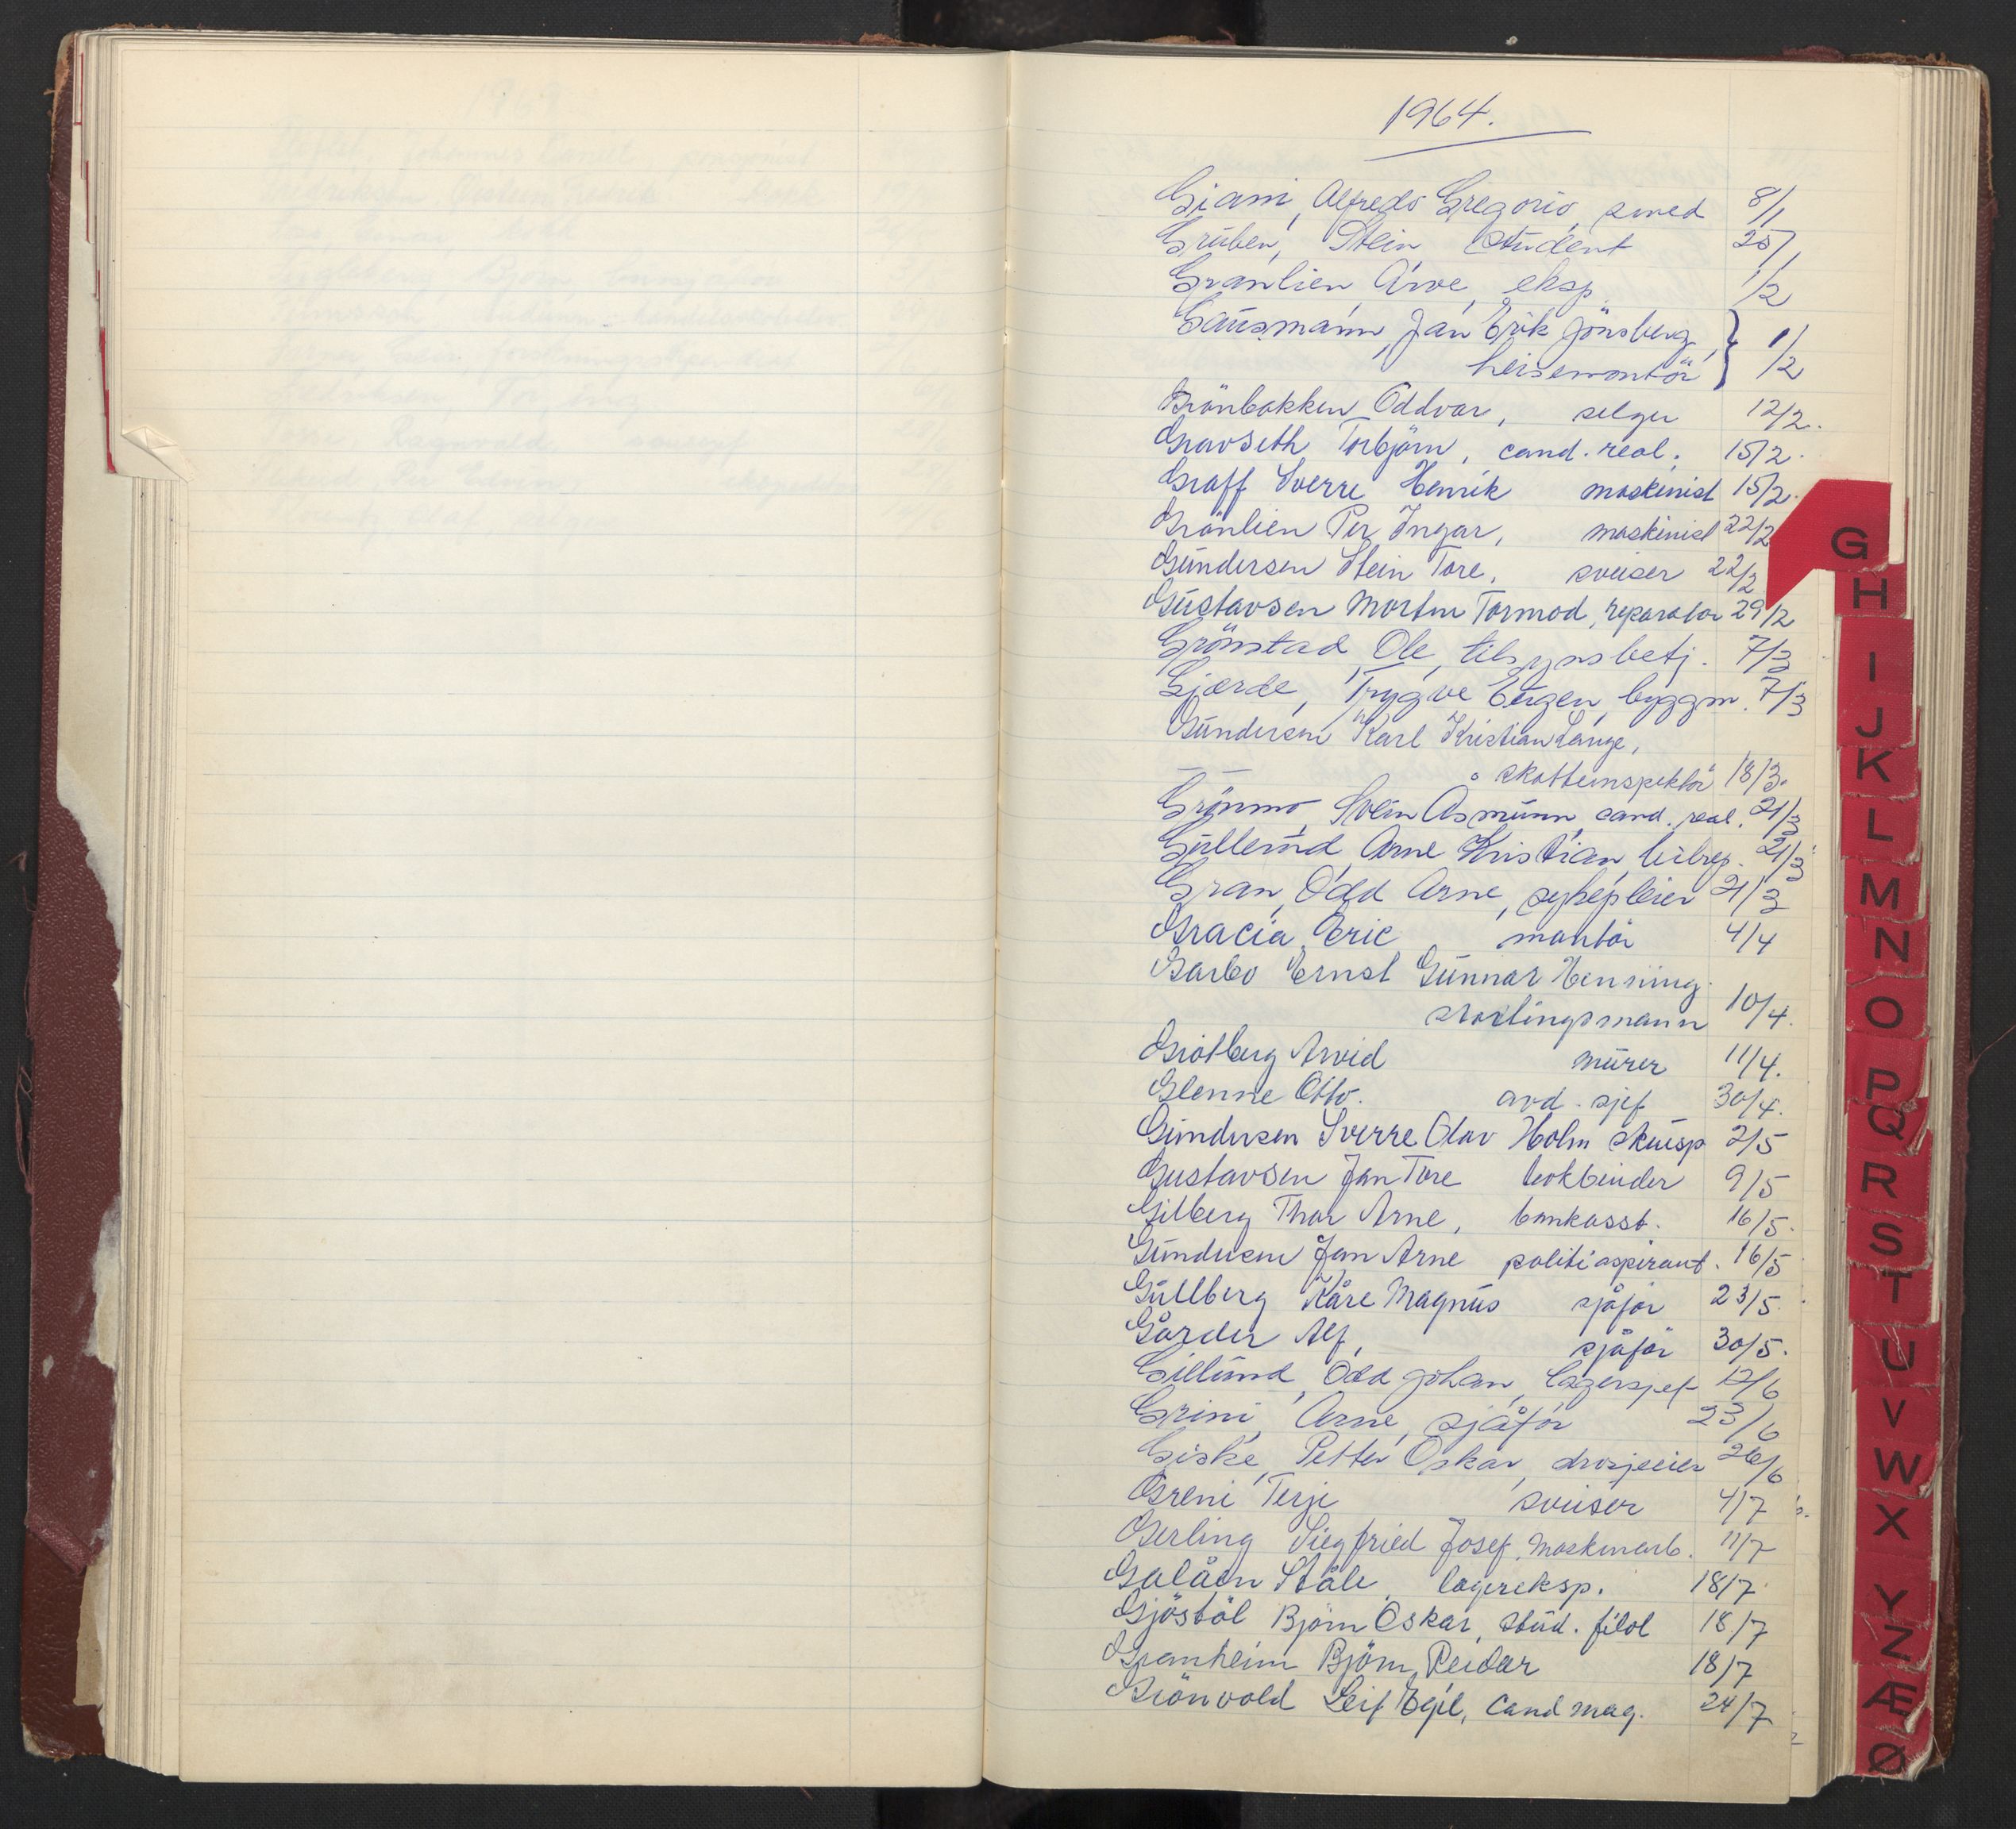 1964.
Giani, Alfredo Gregorio, smed 8/1
Gruben, Stein student 25/1
Granlien, Arve, eksp. 1/2
Gausmann, Jan Erik Jönsberg,
heisemontör } 1/2
Grönbakken Oddvar, selger 12/2.
Gravseth Torbjörn, cand. real. 15/2.
Graff Sverre Henrik maskinist 15/2.
Grönlien Per Ingar, maskinist 22/2
Gundersen Stein Tore, sveiser 22/2
Gustavsen Morten Tormod, reparatör 29/2
Grönstad, Ole, tilsynsbetj. 7/3
Gjærde, Trygve Eugen, byggm. 7/3
Gundersen Karl Kristian Lange,
skatteinspektör 18/3.
Grönmo, Svein Åsmunn, cand. real. 21/3
Gullerud, Arne Kristian, bilrep. 21/3
Gran, Odd Arne, sykepleier 21/3
Gracia, Eric montör 4/4
Garbo Ernst Gunnar Henning
stortingsmann 10/4.
Grötberg Arvid murer 11/4.
Glenne Otto. avd. sjef 30/4.
Gundersen Sverre Olav Holm skuesp 2/5
Gustavsen Jan Tore bokbinder 9/5
Gilberg Thor Arne, bankasst. 16/5.
Gundersen Jan Arne politiaspirant. 16/5
Gullberg Kåre Magnus sjåför 23/5.
Gårder Alf, sjåför 30/5.
Gillund, Odd Johan, lagersjef 12/6
Grini, Arne, sjåför 23/6
Giske, Petter Oskar, drosjeeier 26/6
Greni Terje sveiser 4/7
Gerling Siegfried Josef, maskinarb. 11/7
Galåen Ståle, lagereksp. 18/7
Gjöstöl Björn Oskar, stud. filol 18/7
Granheim Björn Reidar 18/7
Grönvold Leif Egil, cand mag. 24/7
G
H
I
J
K
L
M
N
O
P
Q
R
S
T
U
V
W
X
Y
Z
Æ
Ø